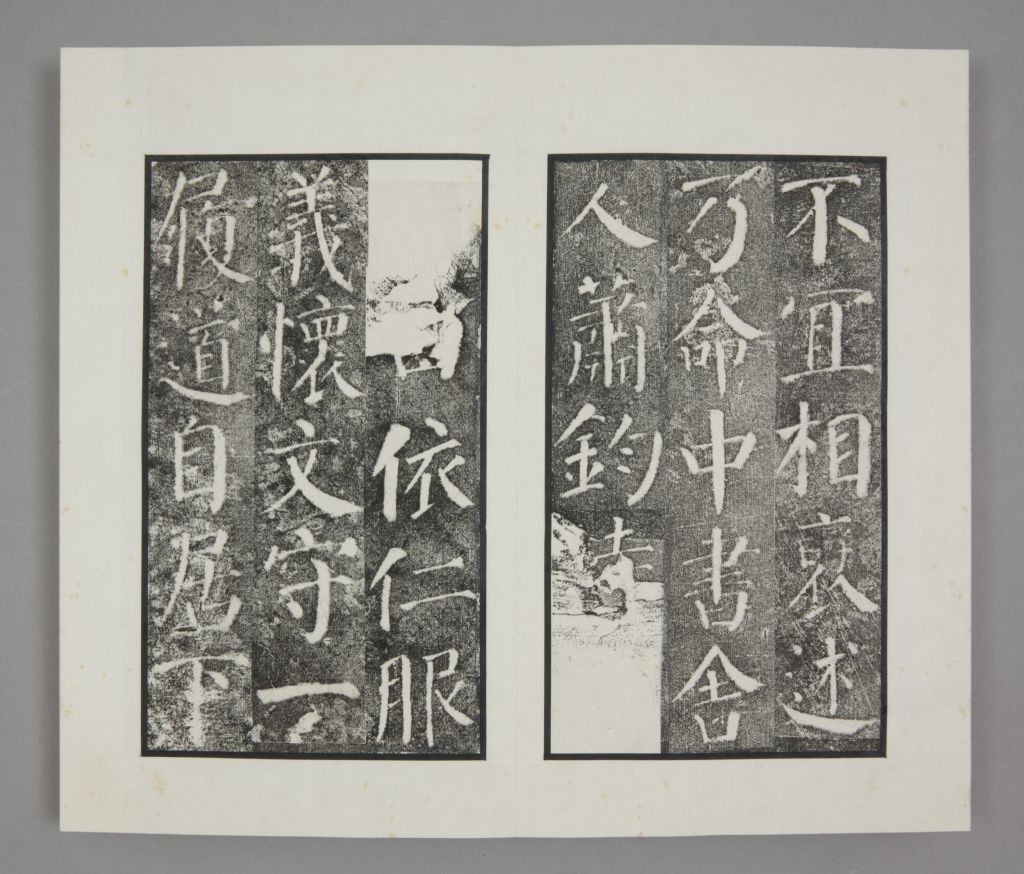 不宜相褒述
乃命中書舍
人蕭鈞
依仁服
義懷文守一
履道自居下